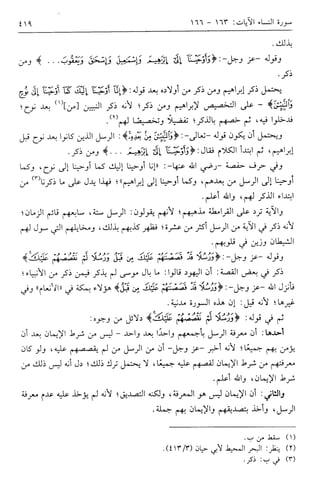 سورة النساء الآيات: ١٦٣ - ١٦٦
٤١٩
بذلك.
وقوله -عز وجل-: ﴿وَأَوْحَيْنَا إِلَىٰ إِبْرَٰهِيمَ وَإِسْمَٰعِيلَ وَإِسْحَٰقَ وَيَعْقُوبَ... ﴾ ومن
ذكر.
يحتمل ذكر إبراهيم ومن ذكر من أولاده بعد قوله: ﴿إِنَّا أَوْحَيْنَا إِلَيْكَ كَمَا أَوْحَيْنَا إِلَىٰ نُوحٍ
وَالنَّبِيِّـۧنَ﴾ - على التخصيص لإبراهيم ومن ذكر؛ لأنه ذكر النبيين [من](١) بعد نوح؛
فدخلوا فيه، ثم خصهم بالذكر؛ تفضيلًا وتخصيصًا لهم(٢).
ويحتمل أن يكون قوله -تعالى-: ﴿وَالنَّبِيِّـۧنَ مِنۢ بَعْدِهِ﴾: الرسل الذين كانوا بعد نوح قبل
إبراهيم، ثم ابتدأ الكلام فقال: ﴿وَأَوْحَيْنَا إِلَىٰ إِبْرَٰهِيمَ ... ﴾ ومن ذكر.
وفي حرف حفصة -رضي الله عنها-: «إنا أوحينا إليك كما أوحينا إلى نوح، وكما
أوحينا إلى الرسل من بعدهم، وكما أوحينا إلى إبراهيم»؛ فهذا يدل على ما ذكرنا(٣) من
ابتداء الذكر لهم، والله أعلم.
والآية ترد على القرامطة مذهبهم؛ لأنهم يقولون: الرسل ستة، سابعهم قائم الزمان؛
لأنه ذكر في الآية من الرسل أكثر من عشرة؛ فظهر كذبهم بذلك، ومخايلهم التي سول لهم
الشيطان وزين في قلوبهم.
وقوله -عز وجل-: ﴿وَرُسُلًا قَدْ قَصَصْنَٰهُمْ عَلَيْكَ مِن قَبْلُ وَرُسُلًا لَّمْ نَقْصُصْهُمْ عَلَيْكَ﴾
ذكر في بعض القصة: أن اليهود قالوا: ما بال موسى لم يذكر فيمن ذكر من الأنبياء؛
فأنزل الله -عز وجل-: ﴿وَرُسُلًا قَدْ قَصَصْنَٰهُمْ عَلَيْكَ مِن قَبْلُ﴾ هؤلاء بمكة في «الأنعام» وفي
غيرها؛ لأنه قيل: إن هذه السورة مدنية.
ثم في قوله: ﴿وَرُسُلًا لَّمْ نَقْصُصْهُمْ عَلَيْكَ﴾ دلائل من وجوه:
أحدها: أن معرفة الرسل بأجمعهم واحدًا بعد واحد - ليس من شرط الإيمان بعد أن
يؤمن بهم جميعًا؛ لأنه أخبر -عز وجل- أن من الرسل من لم يقصصهم عليه، ولو كان
معرفتهم من شرط الإيمان لقصهم عليه جميعًا، لا يحتمل ترك ذلك؛ دل أنه ليس ذلك من
شرط الإيمان، والله أعلم.
والثاني: أن الإيمان ليس هو المعرفة، ولكنه التصديق؛ لأنه لم يؤخذ عليه عدم معرفة
الرسل، وأخذ بتصديقهم والإيمان بهم جملة.
(١) سقط من ب.
(٢) ينظر: البحر المحيط لأبي حيان (٤١٣/٣).
(٣) في ب: ذكر.